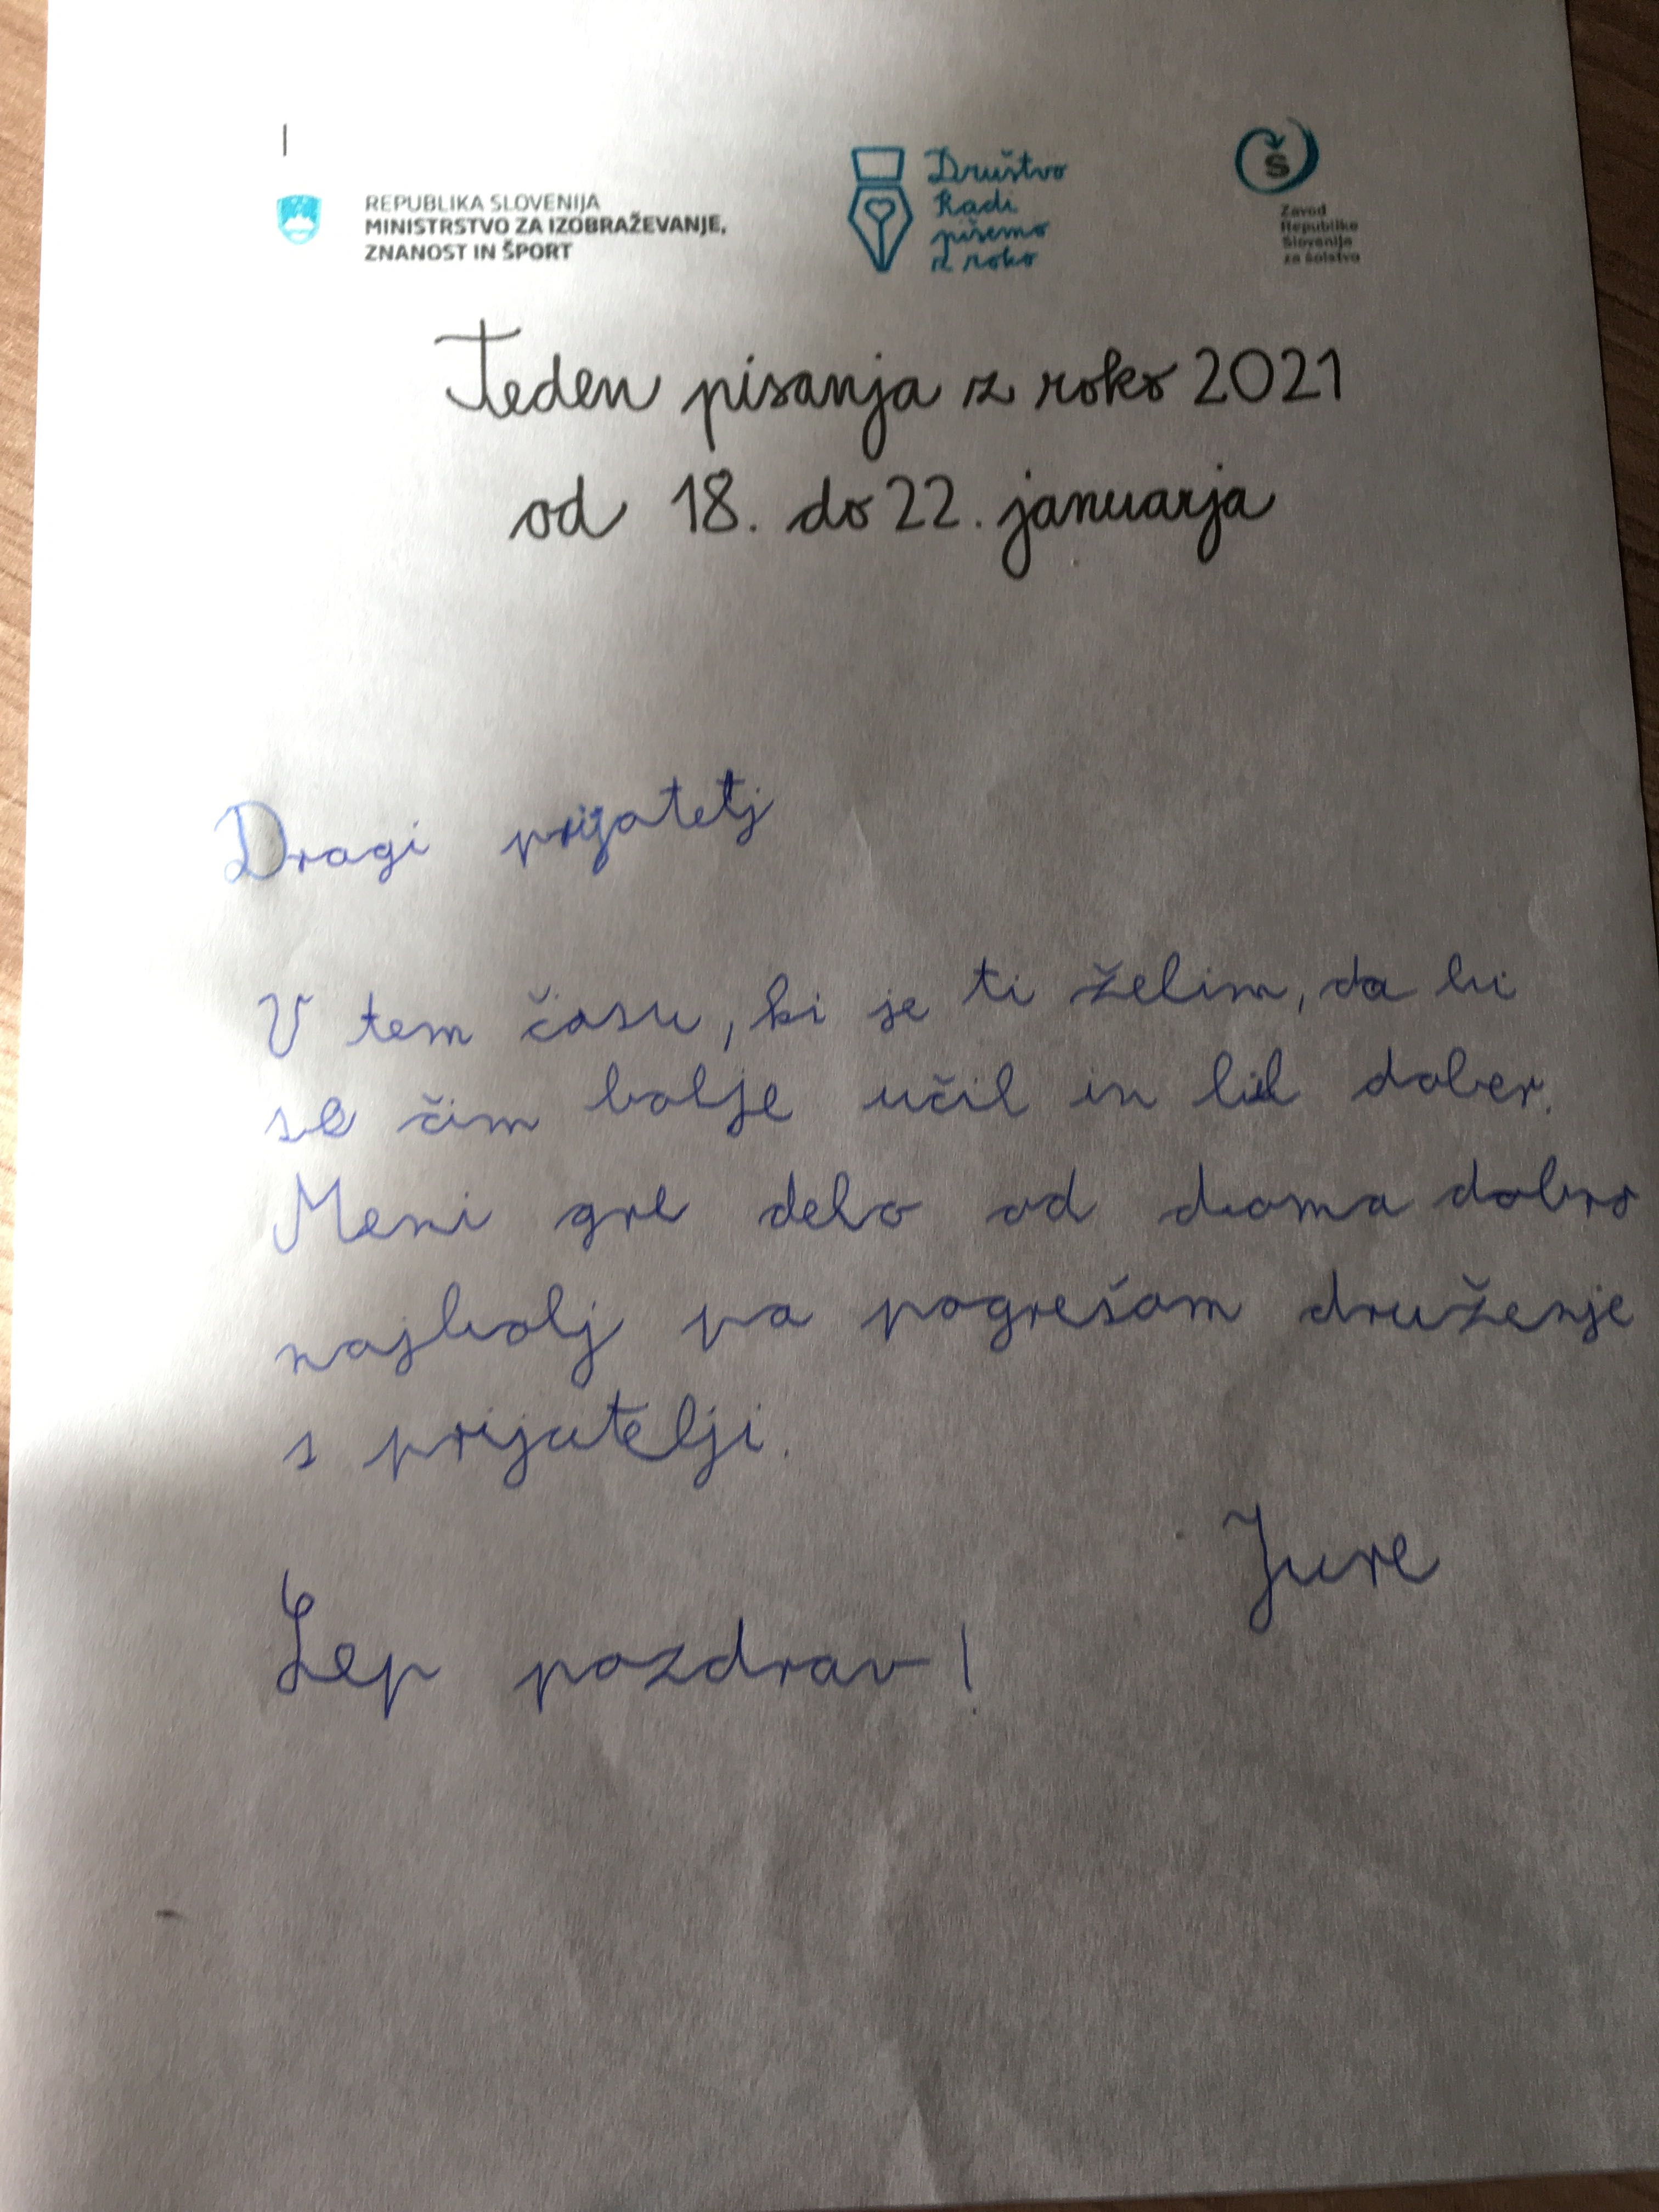 REPUBLIKA SLOVENIJA
MINISTRSTVO ZA IZOBRAŽEVANJE,
ZNANOST IN ŠPORT
Društvo
Radi
pišemo
z roko
Š
Zavod
Republike
Slovenije
za šolstvo
Teden pisanja z roko 2021
od 18. do 22. januarja
Dragi prijatelj
V tem času, ki je ti želim, da bi
se čim bolje učil in bil dober.
Meni gre delo od doma dobro
najbolj pa pogrešam druženje
s prijatelji.
Jure
Lep pozdrav!